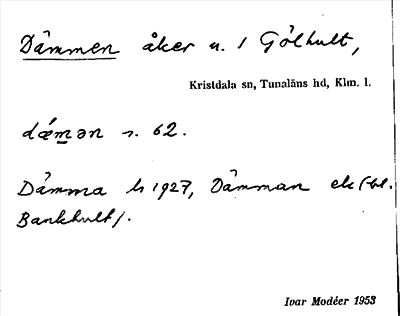 Dåmmen åker u. 1 Gölhult,
Kristdala sn, Tunaläns hd, Klm. l.
dǽmən s. 62.
Dämma h 1927, Dämman ek (bl.
Bankhult).
Ivar Modéer 1953